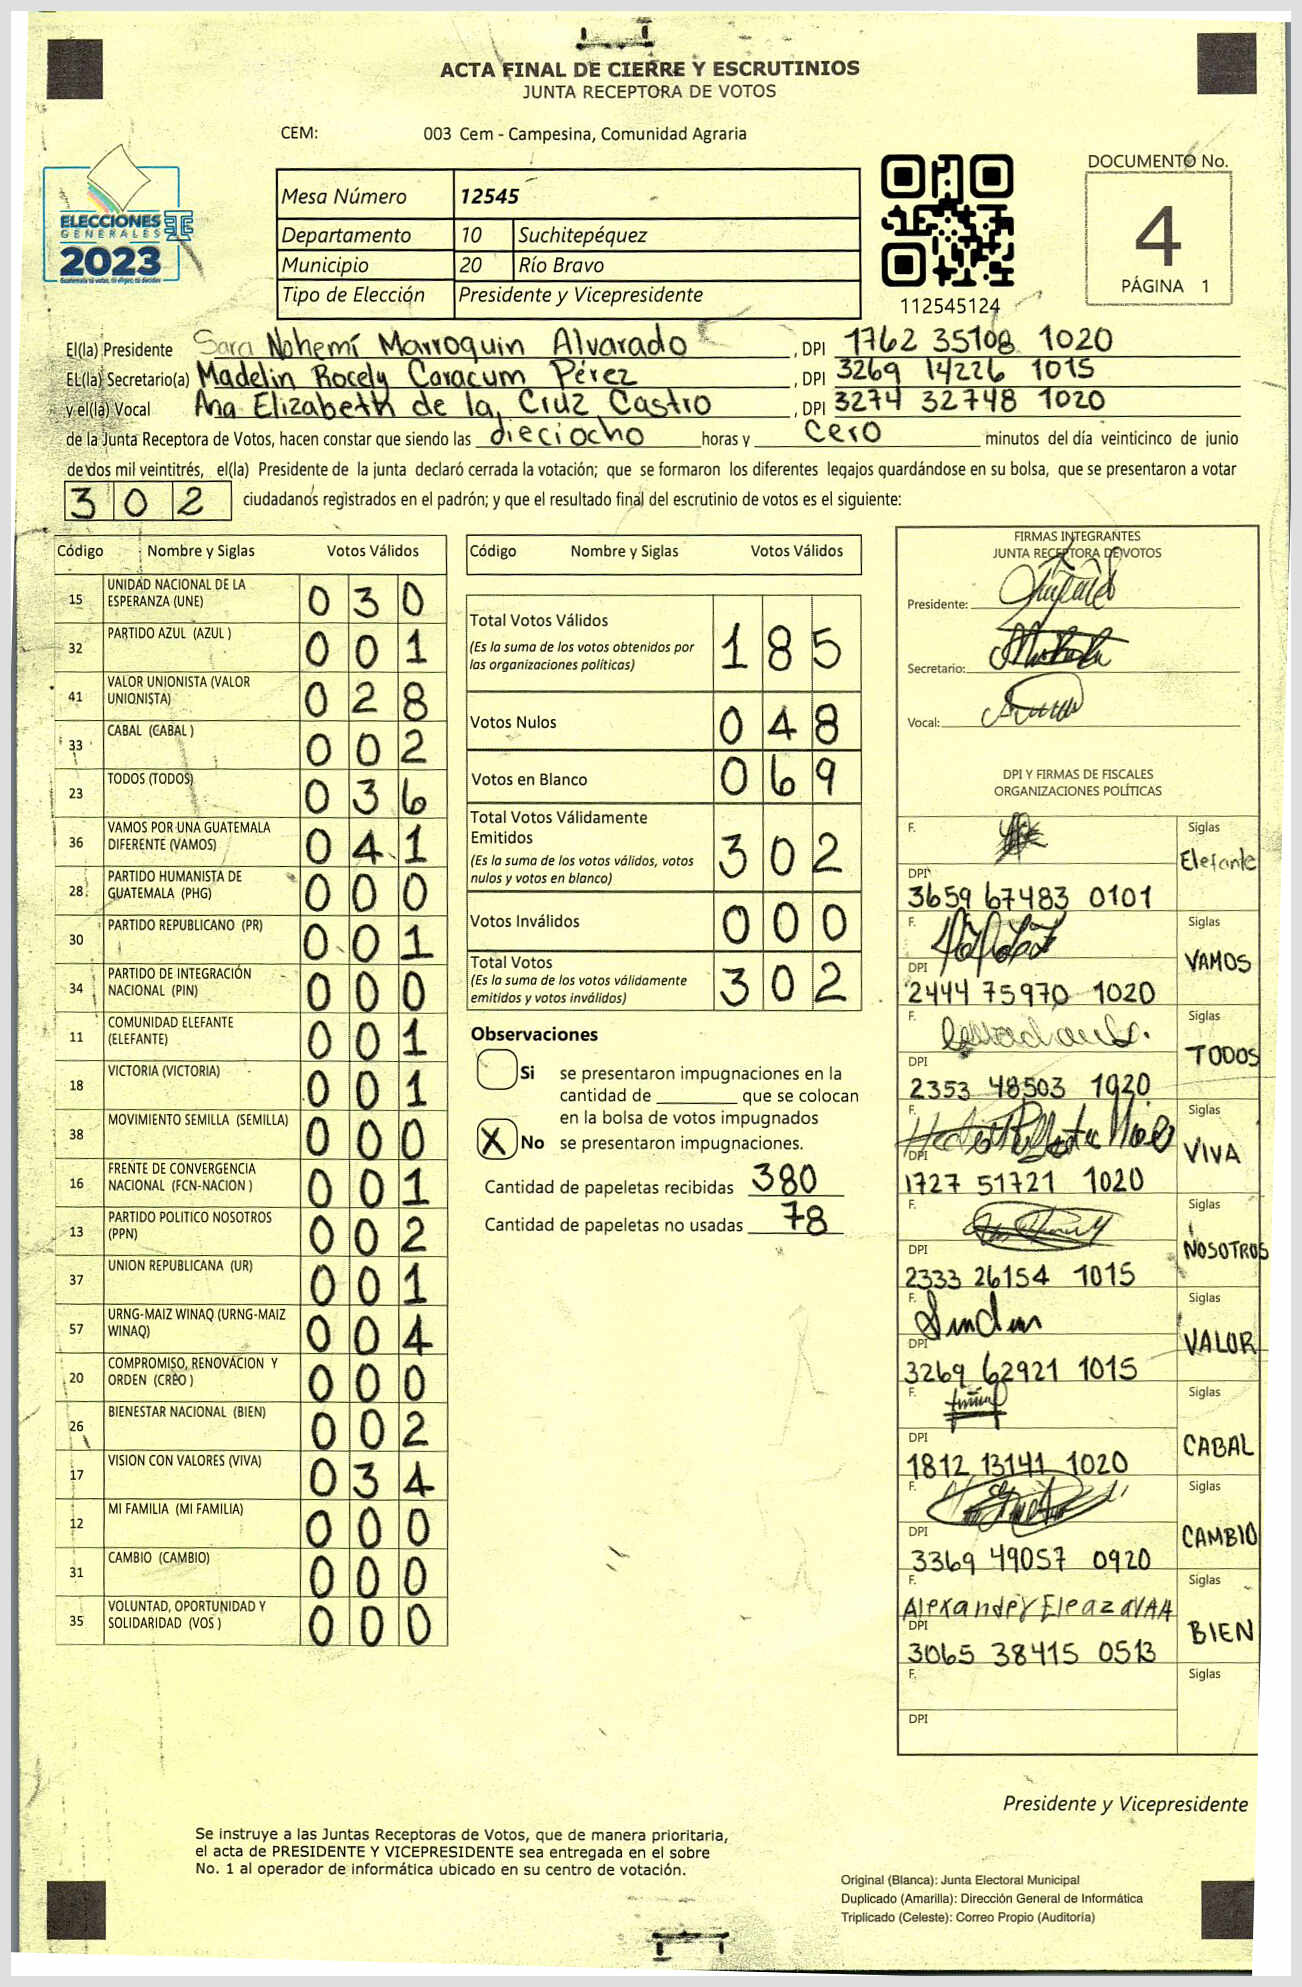 ACTA FINAL DE CIERRE Y ESCRUTINIOS
JUNTA RECEPTORA DE VOTOS
CEM: 003 Cem - Campesina, Comunidad Agraria
ELECCIONES
GENERALES
2023
Guatemala tú votas, tú eliges, tú decides
Mesa Número 12545
Departamento 10 Suchitepéquez
Municipio 20 Río Bravo
Tipo de Elección Presidente y Vicepresidente
112545124
DOCUMENTO No.
4
PÁGINA 1
El(la) Presidente Sara Nohemí Marroquin Alvarado , DPI 1762 35108 1020
EL(la) Secretario(a) Madelin Rocely Caracum Pérez , DPI 3269 14226 1015
y el(la) Vocal Ana Elizabeth de la Cruz Castro , DPI 3274 32748 1020
de la Junta Receptora de Votos, hacen constar que siendo las dieciocho horas y cero minutos del día veinticinco de junio
de dos mil veintitrés, el(la) Presidente de la junta declaró cerrada la votación; que se formaron los diferentes legajos guardándose en su bolsa, que se presentaron a votar
302 ciudadanos registrados en el padrón; y que el resultado final del escrutinio de votos es el siguiente:
Código Nombre y Siglas Votos Válidos
15 UNIDAD NACIONAL DE LA ESPERANZA (UNE) 030
32 PARTIDO AZUL (AZUL ) 001
41 VALOR UNIONISTA (VALOR UNIONISTA) 028
33 CABAL (CABAL ) 002
23 TODOS (TODOS) 036
36 VAMOS POR UNA GUATEMALA DIFERENTE (VAMOS) 041
28 PARTIDO HUMANISTA DE GUATEMALA (PHG) 000
30 PARTIDO REPUBLICANO (PR) 001
34 PARTIDO DE INTEGRACIÓN NACIONAL (PIN) 000
11 COMUNIDAD ELEFANTE (ELEFANTE) 001
18 VICTORIA (VICTORIA) 001
38 MOVIMIENTO SEMILLA (SEMILLA) 000
16 FRENTE DE CONVERGENCIA NACIONAL (FCN-NACION ) 001
13 PARTIDO POLITICO NOSOTROS (PPN) 002
37 UNION REPUBLICANA (UR) 001
57 URNG-MAIZ WINAQ (URNG-MAIZ WINAQ) 004
20 COMPROMISO, RENOVACION Y ORDEN (CREO ) 000
26 BIENESTAR NACIONAL (BIEN) 002
17 VISION CON VALORES (VIVA) 034
12 MI FAMILIA (MI FAMILIA) 000
31 CAMBIO (CAMBIO) 000
35 VOLUNTAD, OPORTUNIDAD Y SOLIDARIDAD (VOS ) 000
Código Nombre y Siglas Votos Válidos
Total Votos Válidos 185
(Es la suma de los votos obtenidos por
las organizaciones políticas)
Votos Nulos 048
Votos en Blanco 069
Total Votos Válidamente
Emitidos 302
(Es la suma de los votos válidos, votos
nulos y votos en blanco)
Votos Inválidos 000
Total Votos 302
(Es la suma de los votos válidamente
emitidos y votos inválidos)
Observaciones
Si se presentaron impugnaciones en la
cantidad de ________ que se colocan
en la bolsa de votos impugnados
X No se presentaron impugnaciones.
Cantidad de papeletas recibidas 380
Cantidad de papeletas no usadas 78
FIRMAS INTEGRANTES
JUNTA RECEPTORA DE VOTOS
Presidente:
Secretario:
Vocal:
DPI Y FIRMAS DE FISCALES
ORGANIZACIONES POLÍTICAS
F. Siglas
Elefante
DPI
3659 67483 0101
F. Siglas
VAMOS
DPI
2444 75970 1020
F. Siglas
TODOS
DPI
2353 48503 1020
F. Siglas
VIVA
DPI
1727 51721 1020
F. Siglas
NOSOTROS
DPI
2333 26154 1015
F. Siglas
VALOR
DPI
3269 62921 1015
F. Siglas
CABAL
DPI
1812 13141 1020
F. Siglas
CAMBIO
DPI
3369 49057 0920
F. Siglas
Alexander
BIEN
DPI
3065 38415 0513
F. Siglas
DPI
Presidente y Vicepresidente
Se instruye a las Juntas Receptoras de Votos, que de manera prioritaria,
el acta de PRESIDENTE Y VICEPRESIDENTE sea entregada en el sobre
No. 1 al operador de informática ubicado en su centro de votación.
Original (Blanca): Junta Electoral Municipal
Duplicado (Amarilla): Dirección General de Informática
Triplicado (Celeste): Correo Propio (Auditoría)